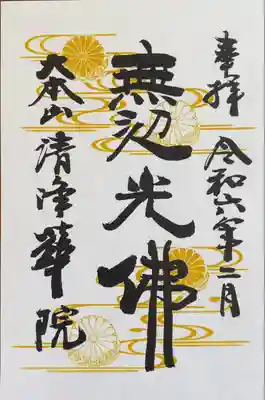 奉拝
令和六年二月
無辺光佛
大本山清浄華院